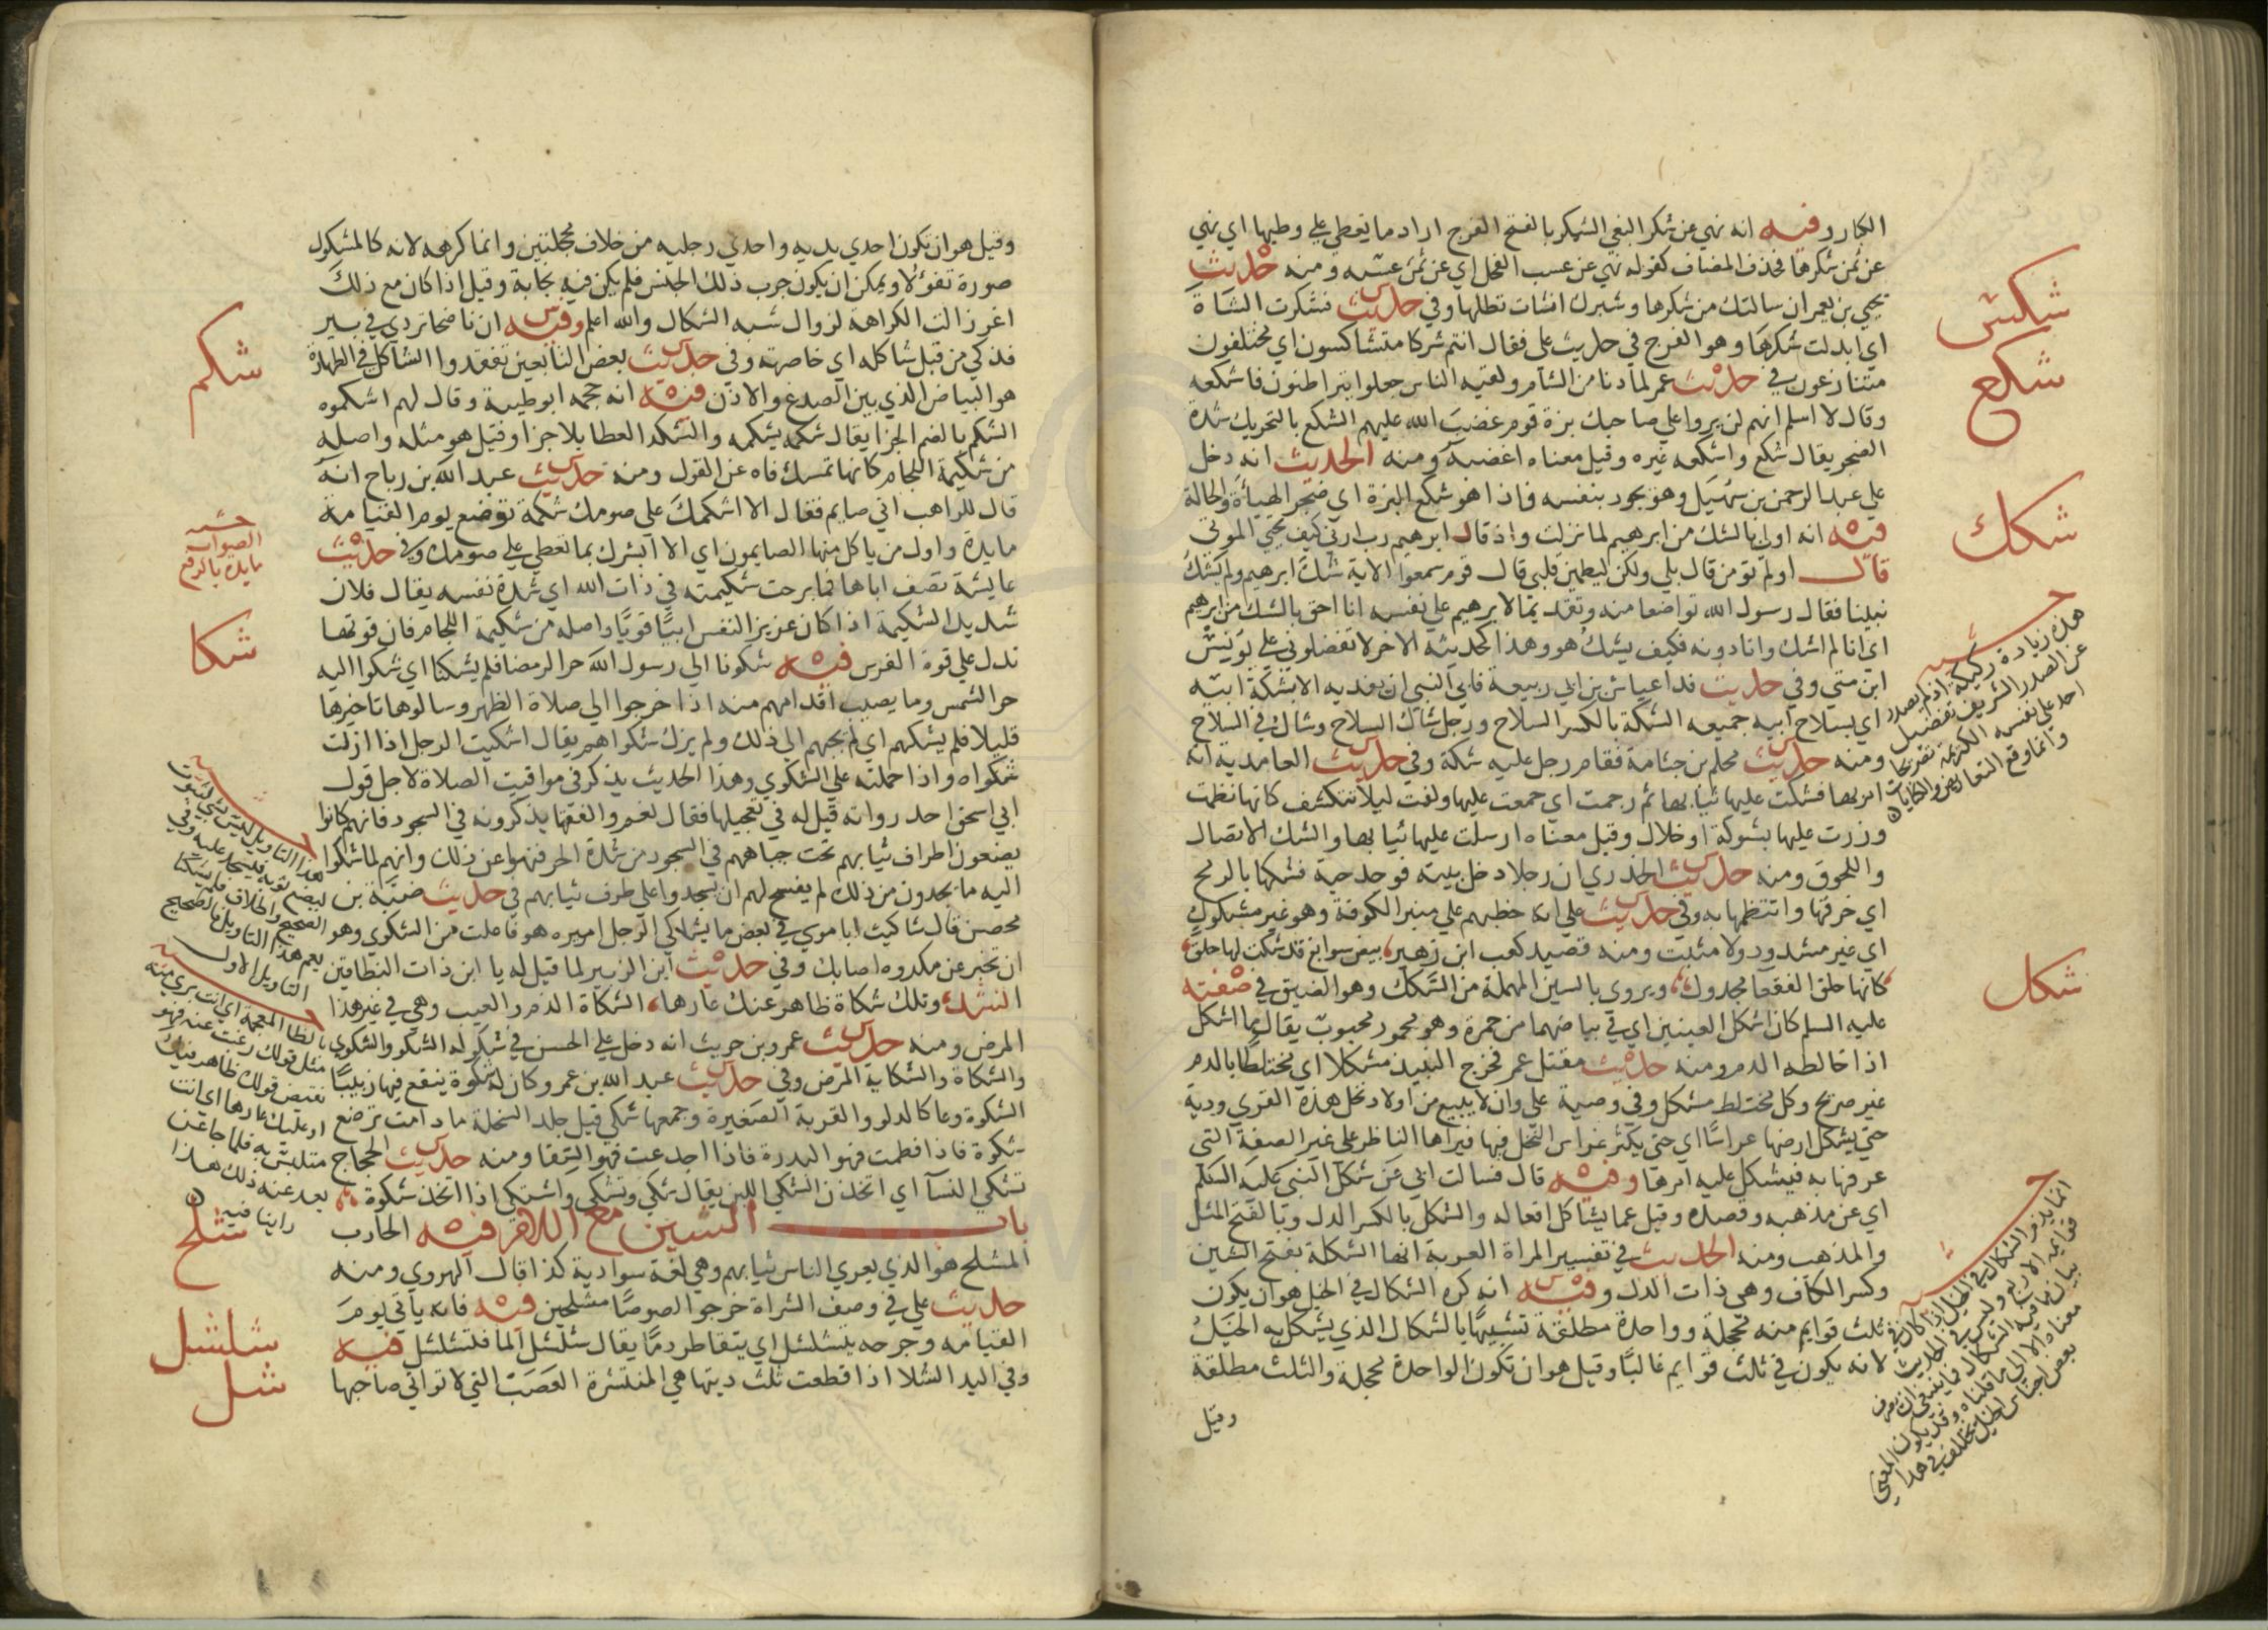 الكار وفيه انه نهي عن شكر البغي الشكر بالفتح الفرج اراد ما يعطي علي وطيها اي نهي
عن ثمن شكرها فحذف المضاف كقوله نهي عن عسب الفحل اي عن ثمن عسبه ومنه حديث
يحيي بن يعمر ان سالتك من شكرها وشبرك انشات تطلها وفي حديث فشكرت الشاة
اي ابدلت شكرها وهو الفرج في حديث علي فقال انتم شركا متشاكسون اي مختلفون
متنازعون في حديث عمر لما دنا من الشام ولقيه الناس جعلوا يتراطنون فاشكعه
وقال لاسلم انهم لن يروا علي صاحبك بزة قوم غضب الله عليهم الشكع بالتحريك شدة
الضجر يقال شكع واشكعه غيره وقيل معناه اغضبه ومنه الحديث انه دخل
علي عبد الرحمن بن سهيل وهو يجود بنفسه فاذا هو شكع البزة اي ضجر الهيأة والحالة
فيه انه اولي بالشك من ابرهيم لما نزلت واذ قال ابرهيم رب ارني كيف تحيي الموتي
قال اولم تومن قال بلي ولكن ليطمين قلبي قال قوم سمعوا الاية شك ابرهيم ولم يشك
نبينا فقال رسول الله تواضعا منه وتقديما لابرهيم علي نفسه انا احق بالشك من ابرهيم
اي انا لم اشك وانا دونه فكيف يشك هو وهذا كحديثه الاخر لا تفضلوني علي يونس
ابن متي وفي حديث فدا عياش بن ابي ربيعة فابي النبي ان يفديه الا بشكة ابيه
اي بسلاح ابيه جميعه الشكة بالكسر السلاح ورجل شاك السلاح وشاك في السلاح
ومنه حديث محلم بن جثامة فقام رجل عليه شكة وفي حديث الغامدية انه
امر بها فشكت عليها ثيابها ثم رجمت اي جمعت عليها ولفت ليلا تنكشف كانها نظمت
وزرت عليها بشوكة او خلال وقيل معناه ارسلت عليها ثيابها والشك الاتصال
واللحوق ومنه حديث الخدري ان رجلا دخل بيته فوجد حية فشكها بالرمح
اي خرقها وانتظمها به وفي حديث علي انه خطبهم علي منبر الكوفة وهو غير مشكوك
اي غير مشدود ولا مثبت ومنه قصيد كعب ابن زهير بيض سوابغ قد شكت لها حلق
كانها حلق القفعا مجدول ويروي بالسين المهملة من السكك وهو الضيق في صفته
عليه السلم كان اشكل العينين اي في بياضهما من حمرة وهو محمود محبوب يقال ما اشكل
اذا خالطه الدم ومنه حديث مقتل عمر فخرج النبيذ مشكلا اي مختلطا بالدم
غير صريح وكل مختلط مشكل وفي وصية علي وان لا يبيع من اولاد نخل هذه القري ودية
حتي يشكل ارضها غراسا اي حتي يكثر غراس النخل فيها فيراها الناظر علي غير الصفة التي
عرفها به فيشكل عليه امرها وفيه قال فسالت ابي عن شكل النبي عليه السلم
اي عن مذهبه وقصده وقيل عما يشاكل افعاله والشكل بالكسر الدل وبالفتح المثل
والمذهب ومنه الحديث في تفسير المراة العربة انها الشكلة بفتح الشين
وكسر الكاف وهي ذات الدل وفيه انه كره الشكال في الخيل هو ان يكون
ثلث قوايم منه محجلة وواحدة مطلقة تشبيها بالشكال الذي يشكل به الخيل
لانه يكون في ثلث قوايم غالبا وقيل هو ان تكون الواحدة محجلة والثلث مطلقة
وقيل
شكس
شكع
شكك
شكل
هذه زيادة ركيكة اذ لم يصدر
عن الصدر الشريف تفضيل
احد علي نفسه الكريمة
وانما وقع التعا
وقيل هو ان يكون احدي يديه واحدي رجليه من خلاف محجلتين وانما كرهه لانه كالمشكول
صورة تفوئلا ويمكن ان يكون جرب ذلك الجنس فلم يكن فيه نجابة وقيل اذا كان مع ذلك
اغر زالت الكراهة لزوال شبه الشكال والله اعلم وفيه ان ناضحا تردي في بير
فذكي من قبل شاكله اي خاصرته وفي حديث بعض التابعين تفقدوا الشاكل في الطهارة
هو البياض الذي بين الصدغ والاذن فيه انه حجمه ابو طيبة وقال لهم اشكموه
الشكم بالضم الجزا يقال شكمه يشكمه والشكد العطا بلا جزا وقيل هو مثله واصله
من شكيمة اللجام كانها تمسك فاه عن القول ومنه حديث عبد الله بن رباح انه
قال للراهب اني صايم فقال الا اشكمك علي صومك شكمة توضع يوم القيامة
مايدة واول من ياكل منها الصايمون اي الا ابشرك بما تعطي علي صومك وفي حديث
عايشة تصف اباها فما برحت شكيمته في ذات الله اي شدة نفسه يقال فلان
شديد الشكيمة اذا كان عزيز النفس ابيا قويا واصله من شكيمة اللجام فان قوتها
تدل علي قوة الفرس فيه شكونا الي رسول الله حر الرمضا فلم يشكنا اي شكوا اليه
حر الشمس وما يصيب اقدامهم منه اذا خرجوا الي صلاة الظهر وسالوه تاخيرها
قليلا فلم يشكهم اي لم يجبهم الي ذلك ولم يزل شكواهم يقال اشكيت الرجل اذا ازلت
شكواه واذا حملته علي الشكوي وهذا الحديث يذكر في مواقيت الصلاة لاجل قول
ابي اسحق احد رواته قيل له في تعجيلها فقال نعم والفقها يذكرونه في السجود فانهم كانوا
يضعون اطراف ثيابهم تحت جباههم في السجود من شدة الحر فنهوا عن ذلك وانهم لما شكوا
اليه ما يجدون من ذلك لم يفسح لهم ان يسجدوا علي طرف ثيابهم في حديث ضبة بن
محصن قال شاكيت ابا موسي في بعض ما يشاكي الرجل اميره هو فاعلت من الشكوي وهو
ان تخبر عن مكروه اصابك وفي حديث ابن الزبير لما قيل له يا ابن ذات النطاقين
انشد وتلك شكاة ظاهر عنك عارها الشكاة الذم والعيب وهي في غير هذا
المرض ومنه حديث عمرو بن حريث انه دخل علي الحسن في شكو له الشكو والشكوي
والشكاة والشكاية المرض وفي حديث عبد الله بن عمرو كان له شكوة ينقع فيها زبيبا
الشكوة وعا كالدلو والقربة الصغيرة وجمعها شكي قيل جلد السخلة ما دامت ترضع
شكوة فاذا فطمت فهو البدرة فاذا اجدعت فهو السقا ومنه حديث الحجاج
تشكي النسآ اي اتخذن الشكي للبن يقال شكي وتشكي واشتكي اذا اتخذ شكوة
باب الشين مع اللام فيه الحارب
المشلح هو الذي يعري الناس ثيابهم وهي لغة سوادية كذا قال الهروي ومنه
حديث علي في وصف الشراة خرجوا لصوصا مشلحين فيه فانه ياتي يوم
القيامه وجرحه يتشلشل اي يتقاطر دما يقال شلشل الما فتشلشل فيه
وفي اليد الشلا اذا قطعت ثلث ديتها هي المنتشرة العصب التي لا تواتي صاحبها
شكم
الصواب
مايدة بالرفع
شكا
شلح
شلشل
شل